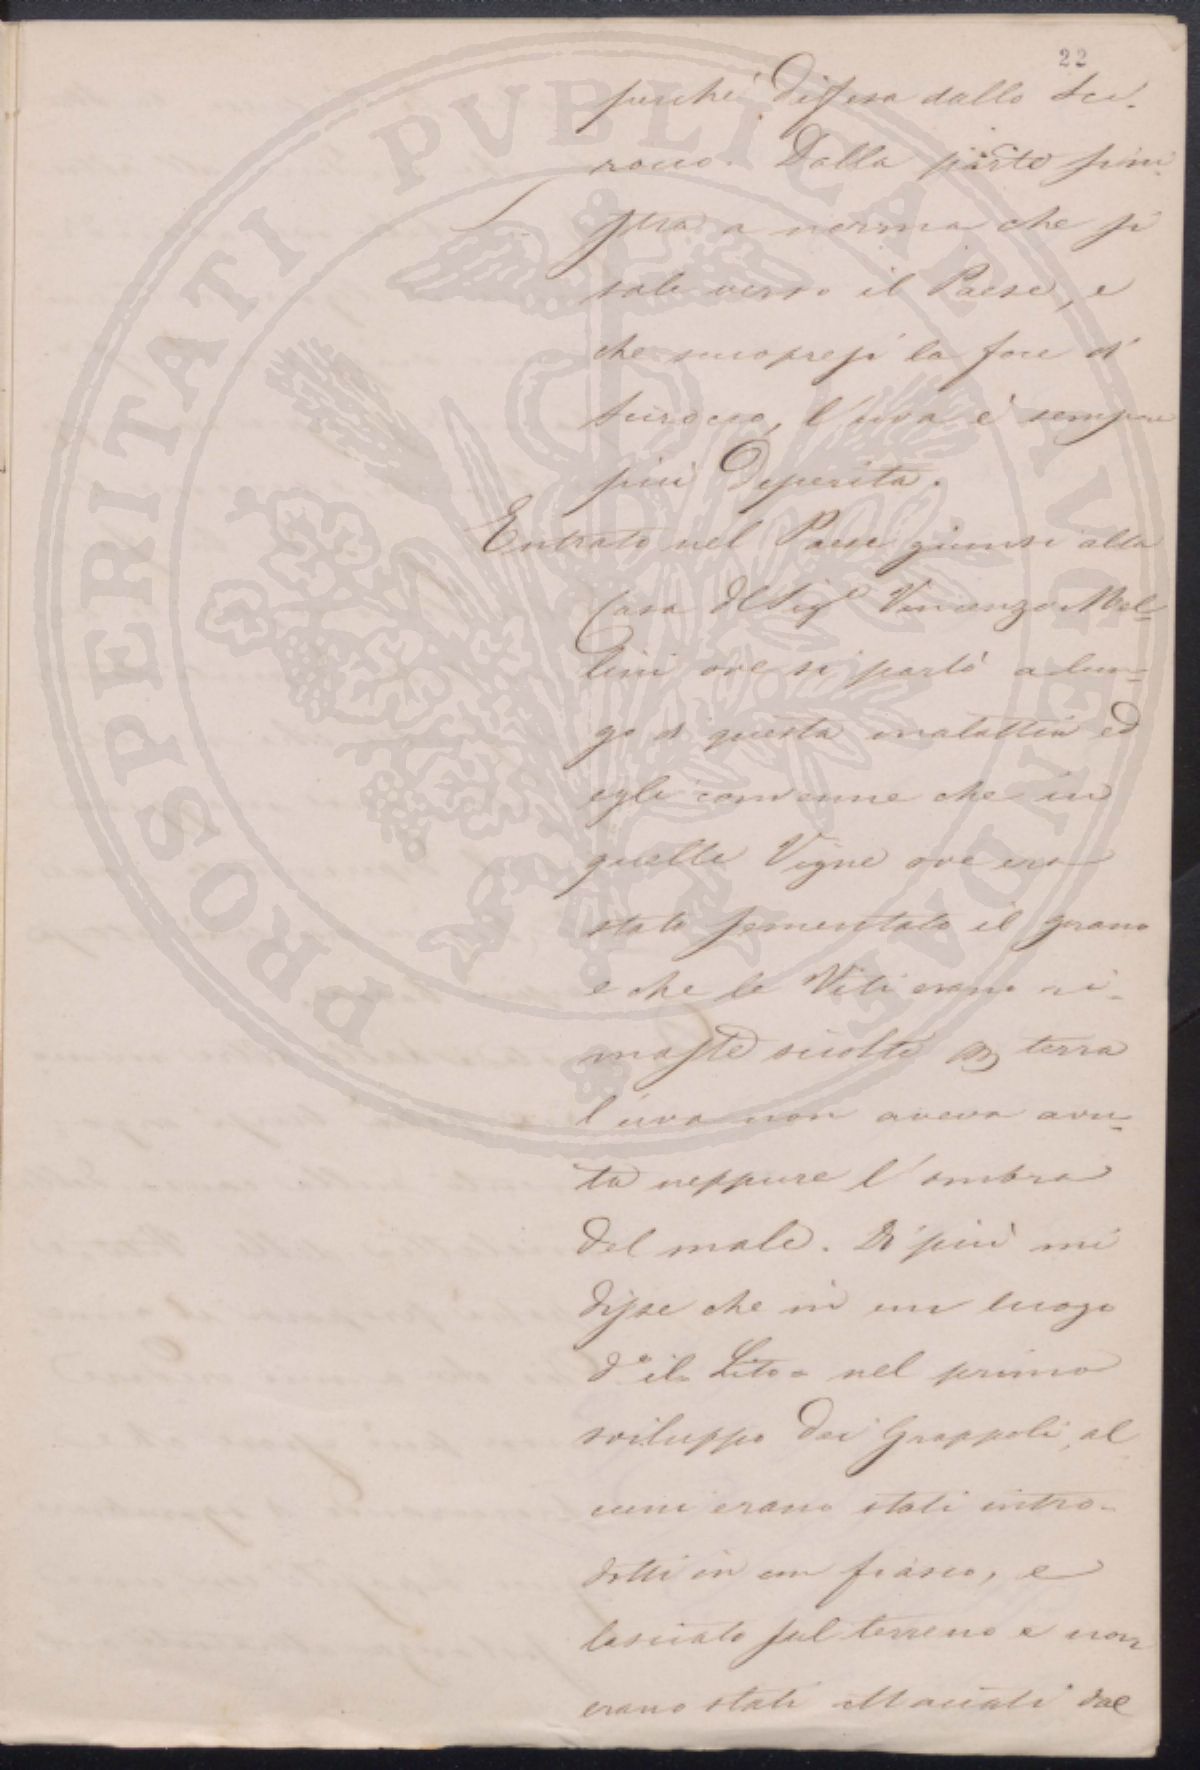 22
perché difesa dallo Sci-
rocco. Dalla parte sini-
stra a norma che si
sale verso il Paese, e
che scuopresi la foce di
Scirocco, l'uva è sempre
più deperita.
Entrato nel Paese giunsi alla
Casa del Sigre Vincenzo Mel-
lini ove si parlò a lun-
go di questa malattia ed
egli convenne che in
quelle Vigne ove era
stato sementato il grano
e che le Viti erano ri-
maste sciolte per terra
l'uva non aveva avu-
ta neppure l'ombra
del male. Di più mi
disse che in un luogo
do il Lito = nel primo
sviluppo dei Grappoli, al
cuni erano stati intro-
dotti in un fiasco, e
lasciato sul terreno e non
erano stati attaccati dal
PROSPERITATI PVBLICAE AVGENDAE